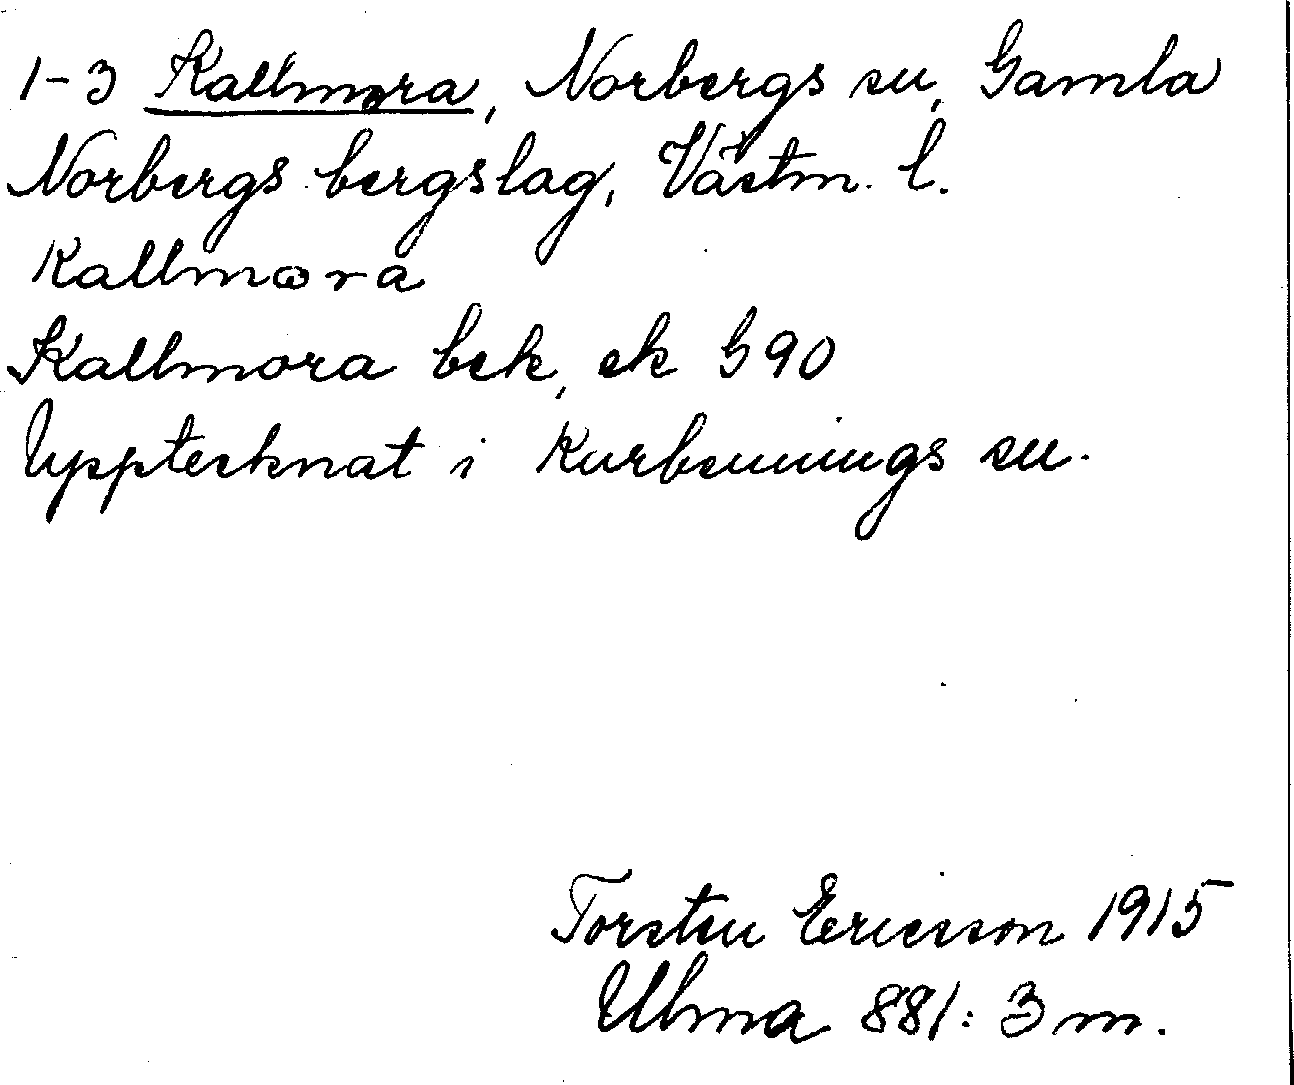 1-3 Kallmora, Norbergs sn, Gamla
Norbergs bergslag, Västm. l.
Kallmωra
Kallmora bek, ek G 90
Upptecknat i Karbennings sn.
Torsten Ericsson 1915
Ulma 881:3 m.